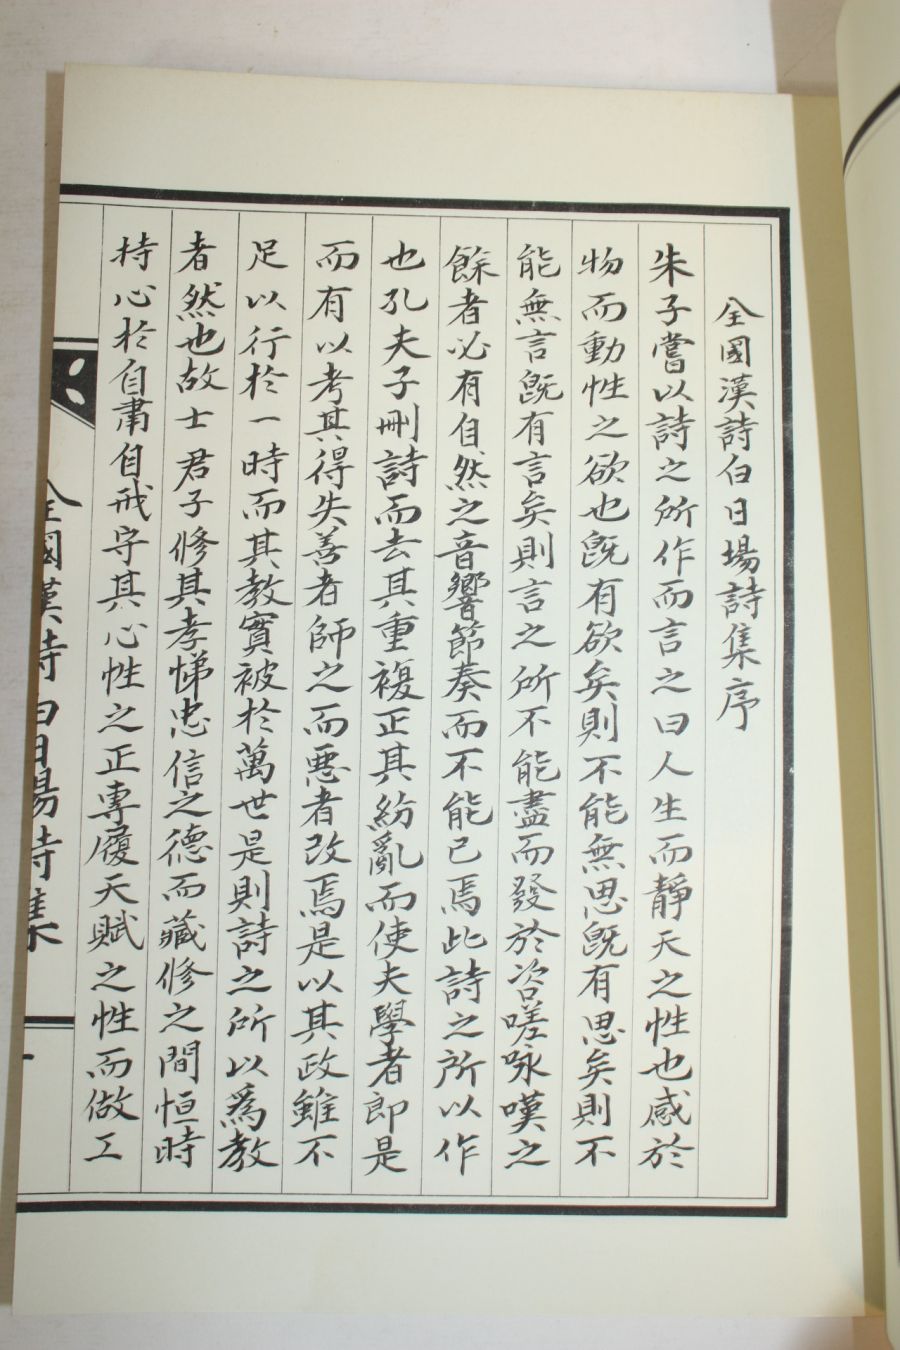 全國漢詩白日場詩集序
朱子嘗以詩之所作而言之曰人生而靜天之性也感於
物而動性之欲也旣有欲矣則不能無思旣有思矣則不
能無言旣有言矣則言之所不能盡而發於咨嗟咏嘆之
餘者必有自然之音響節奏而不能已焉此詩之所以作
也孔夫子刪詩而去其重複正其紛亂而使夫學者即是
而有以考其得失善者師之而惡者改焉是以其政雖不
足以行於一時而其教實被於萬世是則詩之所以爲教
者然也故士君子修其孝悌忠信之德而藏修之間恒時
持心於自肅自戒守其心性之正專履天賦之性而做工
全國漢詩白日場詩集
一